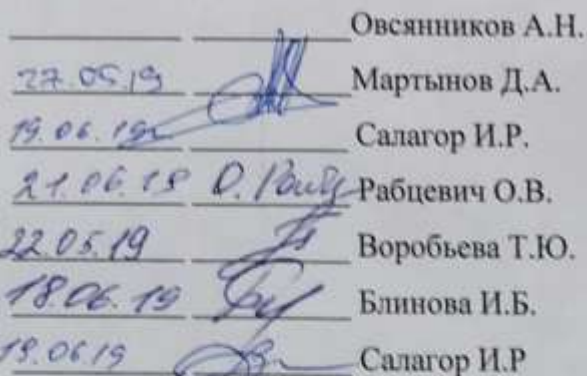 Овсянников А.Н.
27.05.19 Мартынов Д.А.
19.06.19 Салагор И.Р.
21.06.19 Рабцевич О.В.
22.05.19 Воробьева Т.Ю.
18.06.19 Блинова И.Б.
19.06.19 Салагор И.Р